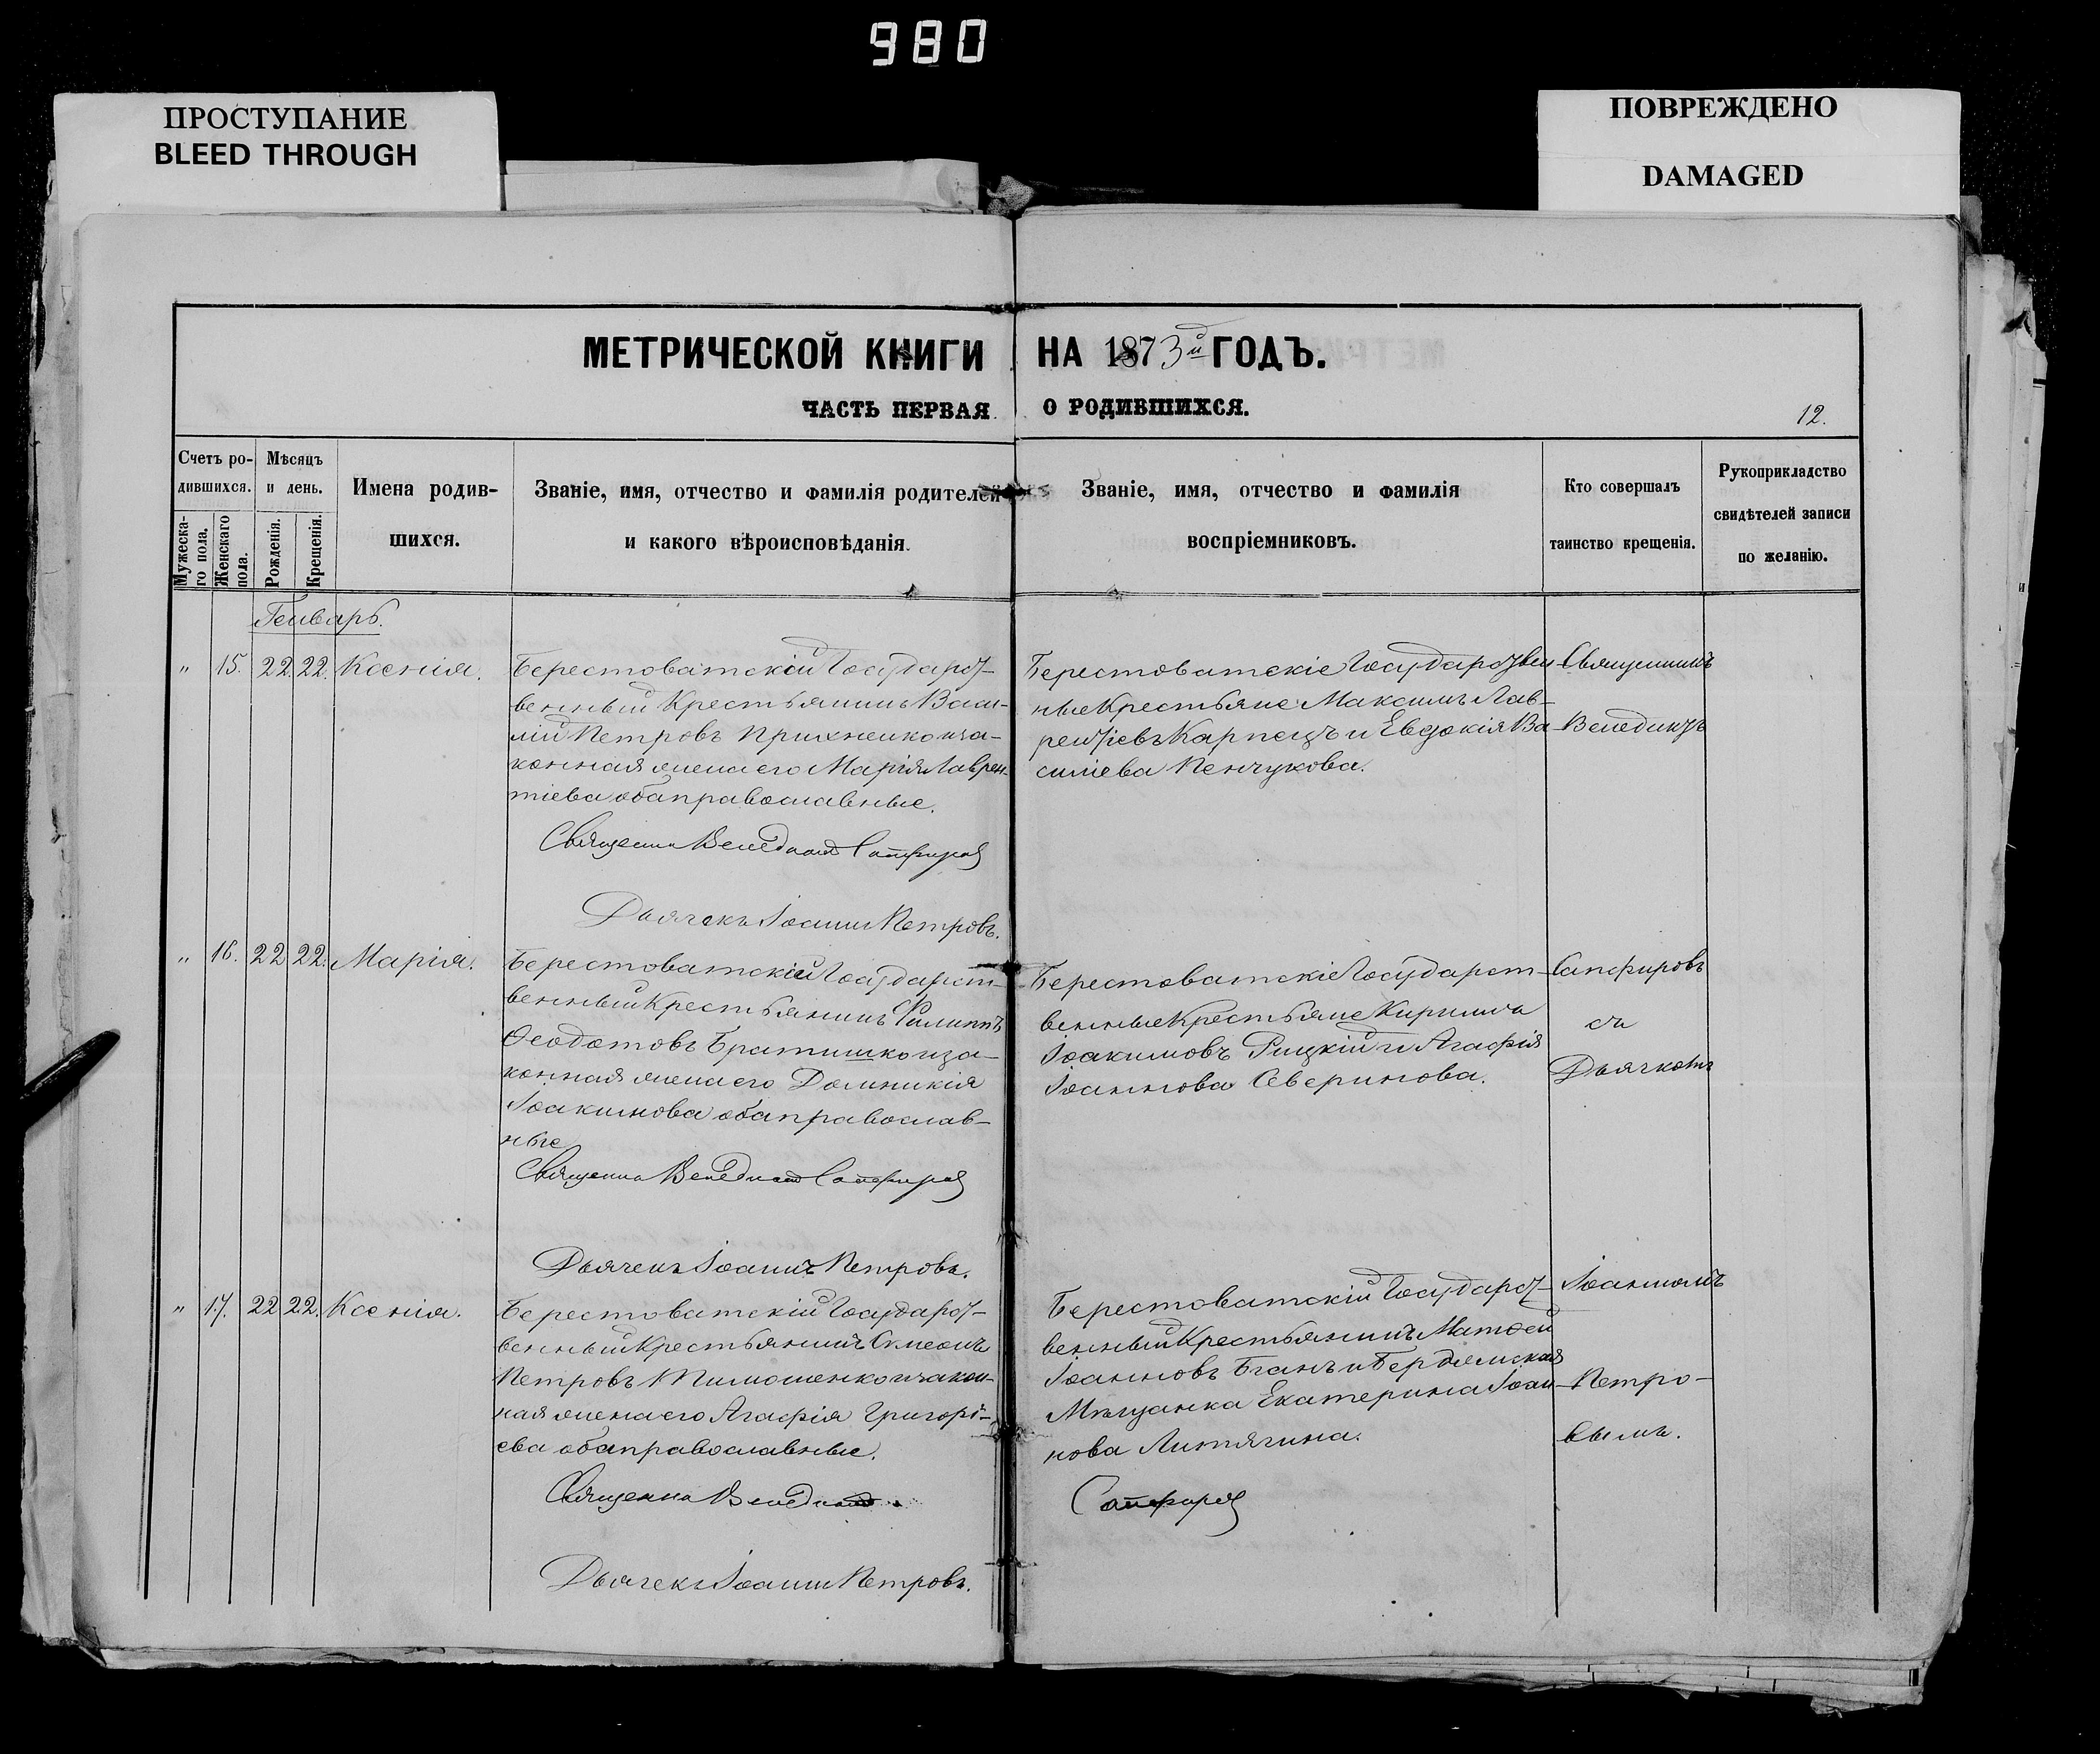 980
ПРОСТУПАНИЕ
BLEED THROUGH
ПОВРЕЖДЕНО
DAMAGED
МЕТРИЧЕСКОЙ КНИГИ НА 1873й ГОДЪ.
ЧАСТЬ ПЕРВАЯ О РОДИВШИХСЯ.
12.
Счетъ ро-
дившихся.
Мужеска-
го пола.
Женскаго
пола.
Мѣсяцъ
и день.
Рожденія.
Крещенія.
Имена родив-
шихся.
Званіе, имя, отчество и фамилія родителей
и какого вѣроисповѣданія.
Званіе, имя, отчество и фамилія
воспріемниковъ.
Кто совершалъ
таинство крещенія.
Рукоприкладство
свидѣтелей записи
по желанію.
Генварь.
„ 15. 22. 22. Ксенія.
Берестоватскій Государст-
венный Крестьянинъ Васи-
лій Петровъ и за-
конная жена его Марія Лаврен-
тіева оба православные.
Священни Венедиктъ Сапфировъ
Дьячекъ Іоаннъ Петровъ.
Берестоватскіе Государствен-
ные Крестьяне Максимъ Лав-
рентіевъ Карпецъ и Евдокія Ва-
силіева Пенчукова.
Священникъ
Венедиктъ
„ 16. 22 22. Марія.
Берестоватскій Государст-
венный Крестьянинъ Филиппъ
Ѳеодотовъ Братишко и за-
конная жена его Домникія
Іоакимова оба православ-
ные
Священни Венедиктъ Сапфировъ
Дьячекъ Іоаннъ Петровъ.
Берестоватскіе Государст-
венные Крестьяне Кириллъ
Іоакимовъ Рицкій и Агафія
Іоаннова Северинова.
Сапфировъ
съ
Дьячкомъ
„ 17. 22 22. Ксенія.
Берестоватскій Государст-
венный Крестьянинъ Симеонъ
Петровъ Тимошенко и закон-
ная жена его Агафія Григорі-
ева оба православные.
Священни Венедиктъ
Дьячекъ Іоаннъ Петровъ.
Берестоватскій Государст-
венный Крестьянинъ Матѳей
Іоанновъ Бганъ и Бердянская
Мѣщанка Екатерина Іоан-
нова Литягина.
Сапфировъ
Іоанномъ
Петро-
вымъ.